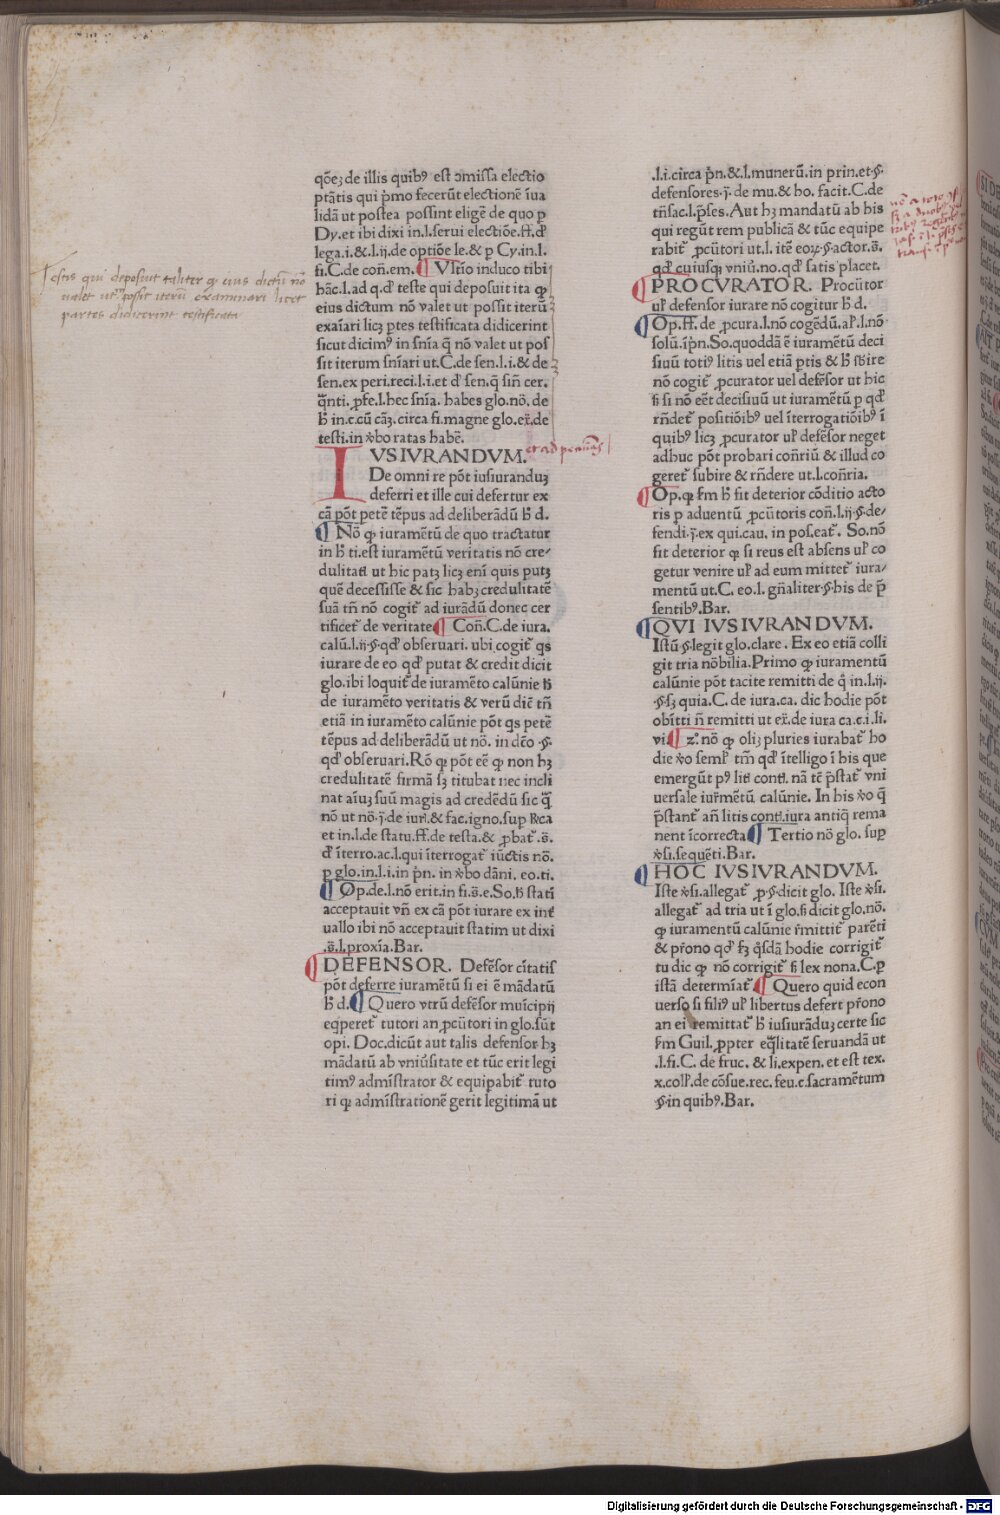 qōeʒ de illis quibꝰ est ɔmissa electio
ptātis qui p̄mo fecerūt electionē iua
lidā ut postea possint eligē de quo p
Dy. et ibi dixi in.l. serui electiōe. ff. đ
lega.i.&.l.ij.de optiōe le.& p Cy.in.l.
fi.C.de con̄.em. Vltīo induco tibi
hāc.l.ad q.đ teste qui deposuit ita ꝙ
eius dictum nō valet ut possit iterū
exaīari licʒ ptes testificata didicerint
sicut dicimꝰ in sn̄ia q̄ nō valet ut pos
sit iterum sn̄iari ut.C.de sen.l.i.& de
sen.ex peri.reci.l.i.et đ sen.q̄ sin̄ cer.
q̄nti. ꝓfe.l.hec sn̄ia. habes glo.nō. de
ħ in.c.cū cāʒ.circa fi.magne glo.ex̄.de
testi.in ꝟbo ratas habē.
IVSIVRANDVM.
De omni re pōt iusiuranduʒ
deferri et ille cui defertur ex
cā pōt petē tēpus ad deliberādū ħ d.
Nō ꝙ iuramētū de quo tractatur
in ħ ti.est iuramētū veritatis nō cre⸗
dulitatī ut hic patʒ licʒ eni quis putʒ
quē decessisse & sic habʒ credulitatē
suā tn̄ nō cogit᷑ ad iurādū donec cer
tificet᷑ de veritate Con̄.C.de iura.
calū.l.ij.§.qđ obseruari. ubi cogit᷑ qs
iurare de eo qđ putat & credit dicit
glo.ibi loquit᷑ de iuramēto calūnie ħ
de iuramēto veritatis & verū dic̄ tn̄
etiā in iuramēto calūnie pōt qs petē
tēpus ad deliberādū ut nō. in dc̄o .§.
qđ obseruari. Rō ꝙ pōt eē ꝙ non hʒ
credulitatē firmā sʒ titubat nec incli
nat aīuʒ suū magis ad credēdū sic q̄
nō ut nō.j.de iur̄.& fac.igno.sup R̄ca
et in.l.de statu.ff.de testa.& ꝓbat᷑.s̄.
đ īterro.ac.l.qui īterrogat᷑ iūctis nō.
p glo.in.l.i.in p̄n. in ꝟbo dāni. eo.ti.
Op.de.l.nō erit.in fi.s̄.e.So.ħ statī
acceptauit vn̄ ex cā pōt iurare ex int᷑
uallo ibi nō acceptauit statim ut dixi
.s̄.l.proxīa.Bar.
DEFENSOR. Defēsor cītatis
pōt deferre iuramētū si ei ē mādatū
ħ d. Quero vtrū defēsor muīcipij
eq̄peret᷑ tutori an ꝓcūtori in glo.sūt
opi. Doc.dicūt aut talis defensor hʒ
mādatū ab vniūsitate et tūc erit legi
timꝰ admīstrator & equipabit᷑ tuto
ri ꝙ admīstrationē gerit legitimā ut
.l.i.circa p̄n.&.l.munerū.in prin.et.§.
defensores.j. de mu.& ho. facit.C.de
tn̄sac.l.p̄ses. Aut hʒ mandatū ab his
qui regūt rem publicā & tūc equipe
rabit᷑ ꝓcūtori ut.l. itē eoꝝ.§.actor.s̄.
qđ cuiusqʒ vniū.no.qđ satis placet.
PROCVRATOR. Procūtor
ul̄ defensor iurare nō cogitur ħ d.
Op.ff.de ꝓcura.l.nō cogēdū.al̄.l.nō
solū.īp̄n.So.quoddā ē iuramētū deci
siuū totiꝰ litis uel etiā ptis & ħ sb̄ire
nō cogit᷑ ꝓcurator uel defēsor ut hic
ß si nō eēt decisiuū ut iuramētū p qđ
rn̄det᷑ positiōibꝰ uel īterrogatiōibꝰ ī
quibꝰ licʒ ꝓcurator ul̄ defēsor neget
adhuc pōt probari con̄riū & illud co
geret᷑ subire & rn̄dere ut.l.con̄ria.
Op.ꝙ fm ħ sit deterior cōditio acto
ris p aduentū ꝓcūtoris con̄.l.ij.§.de⸗
fendi.j.ex qui.cau. in pos.eat᷑. So.nō
sit deterior ꝙ si reus est absens ul̄ co
getur venire ul̄ ad eum mittet᷑ iura⸗
mentū ut.C. eo.l. gn̄aliter.§.his de p̄
sentibꝰ.Bar.
QVI IVSIVRANDVM.
Istū.§.legit glo.clare. Ex eo etiā colli
git tria nōbilia.Primo ꝙ iuramentū
calūnie pōt tacite remitti de q̄ in.l.ij.
.§.sʒ quia.C. de iura.ca. dic hodie pōt
obīttī n̄ remitti ut ex̄.de iura ca.c.i.li.
vi. z°. nō ꝙ oliʒ pluries iurabat᷑ ho
die ꝟo seml̄ tm̄ qđ ītelligo ī his que
emergūt pꝰ litī contī. nā tē p̄stat᷑ vni
uersale iur̄mētū calūnie. In his ꝟo q̄
p̄stant᷑ an̄ litis contī.iura antiq̄ rema
nent īcorrecta Tertio nō glo. sup
ꝟsi.sequēti.Bar.
HOC IVSIVRANDVM.
Iste ꝟsi.allegat᷑ ꝓ.§.dicit glo. Iste ꝟsi.
allegat᷑ ad tria ut ī glo.ß dicit glo.nō.
ꝙ iuramentū calūnie r̄mittit᷑ parēti
& pr̄ono qđ sʒ q̄sdā hodie corrigit᷑
tu dic ꝙ nō corrigit᷑ ß lex nona.C.p
istā determīat᷑ Quero quid econ
uerso si filiꝰ ul̄ libertus defert pr̄ono
an ei remittat᷑ ħ iusiurāduʒ certe sic
fm Guil. ꝓpter eq̄litatē seruandā ut
.l.fi.C. de fruc. & li.expen. et est tex.
x.coll̄.de cōsue.rec. feu.c.sacramētum
.§.in quibꝰ.Bar.
Testis qui deposuit taliter ꝙ eius dictū nō
ualet utrū possit iterū examinari licet
partes didicerint testificata
Digitalisierung gefördert durch die Deutsche Forschungsgemeinschaft - DFG